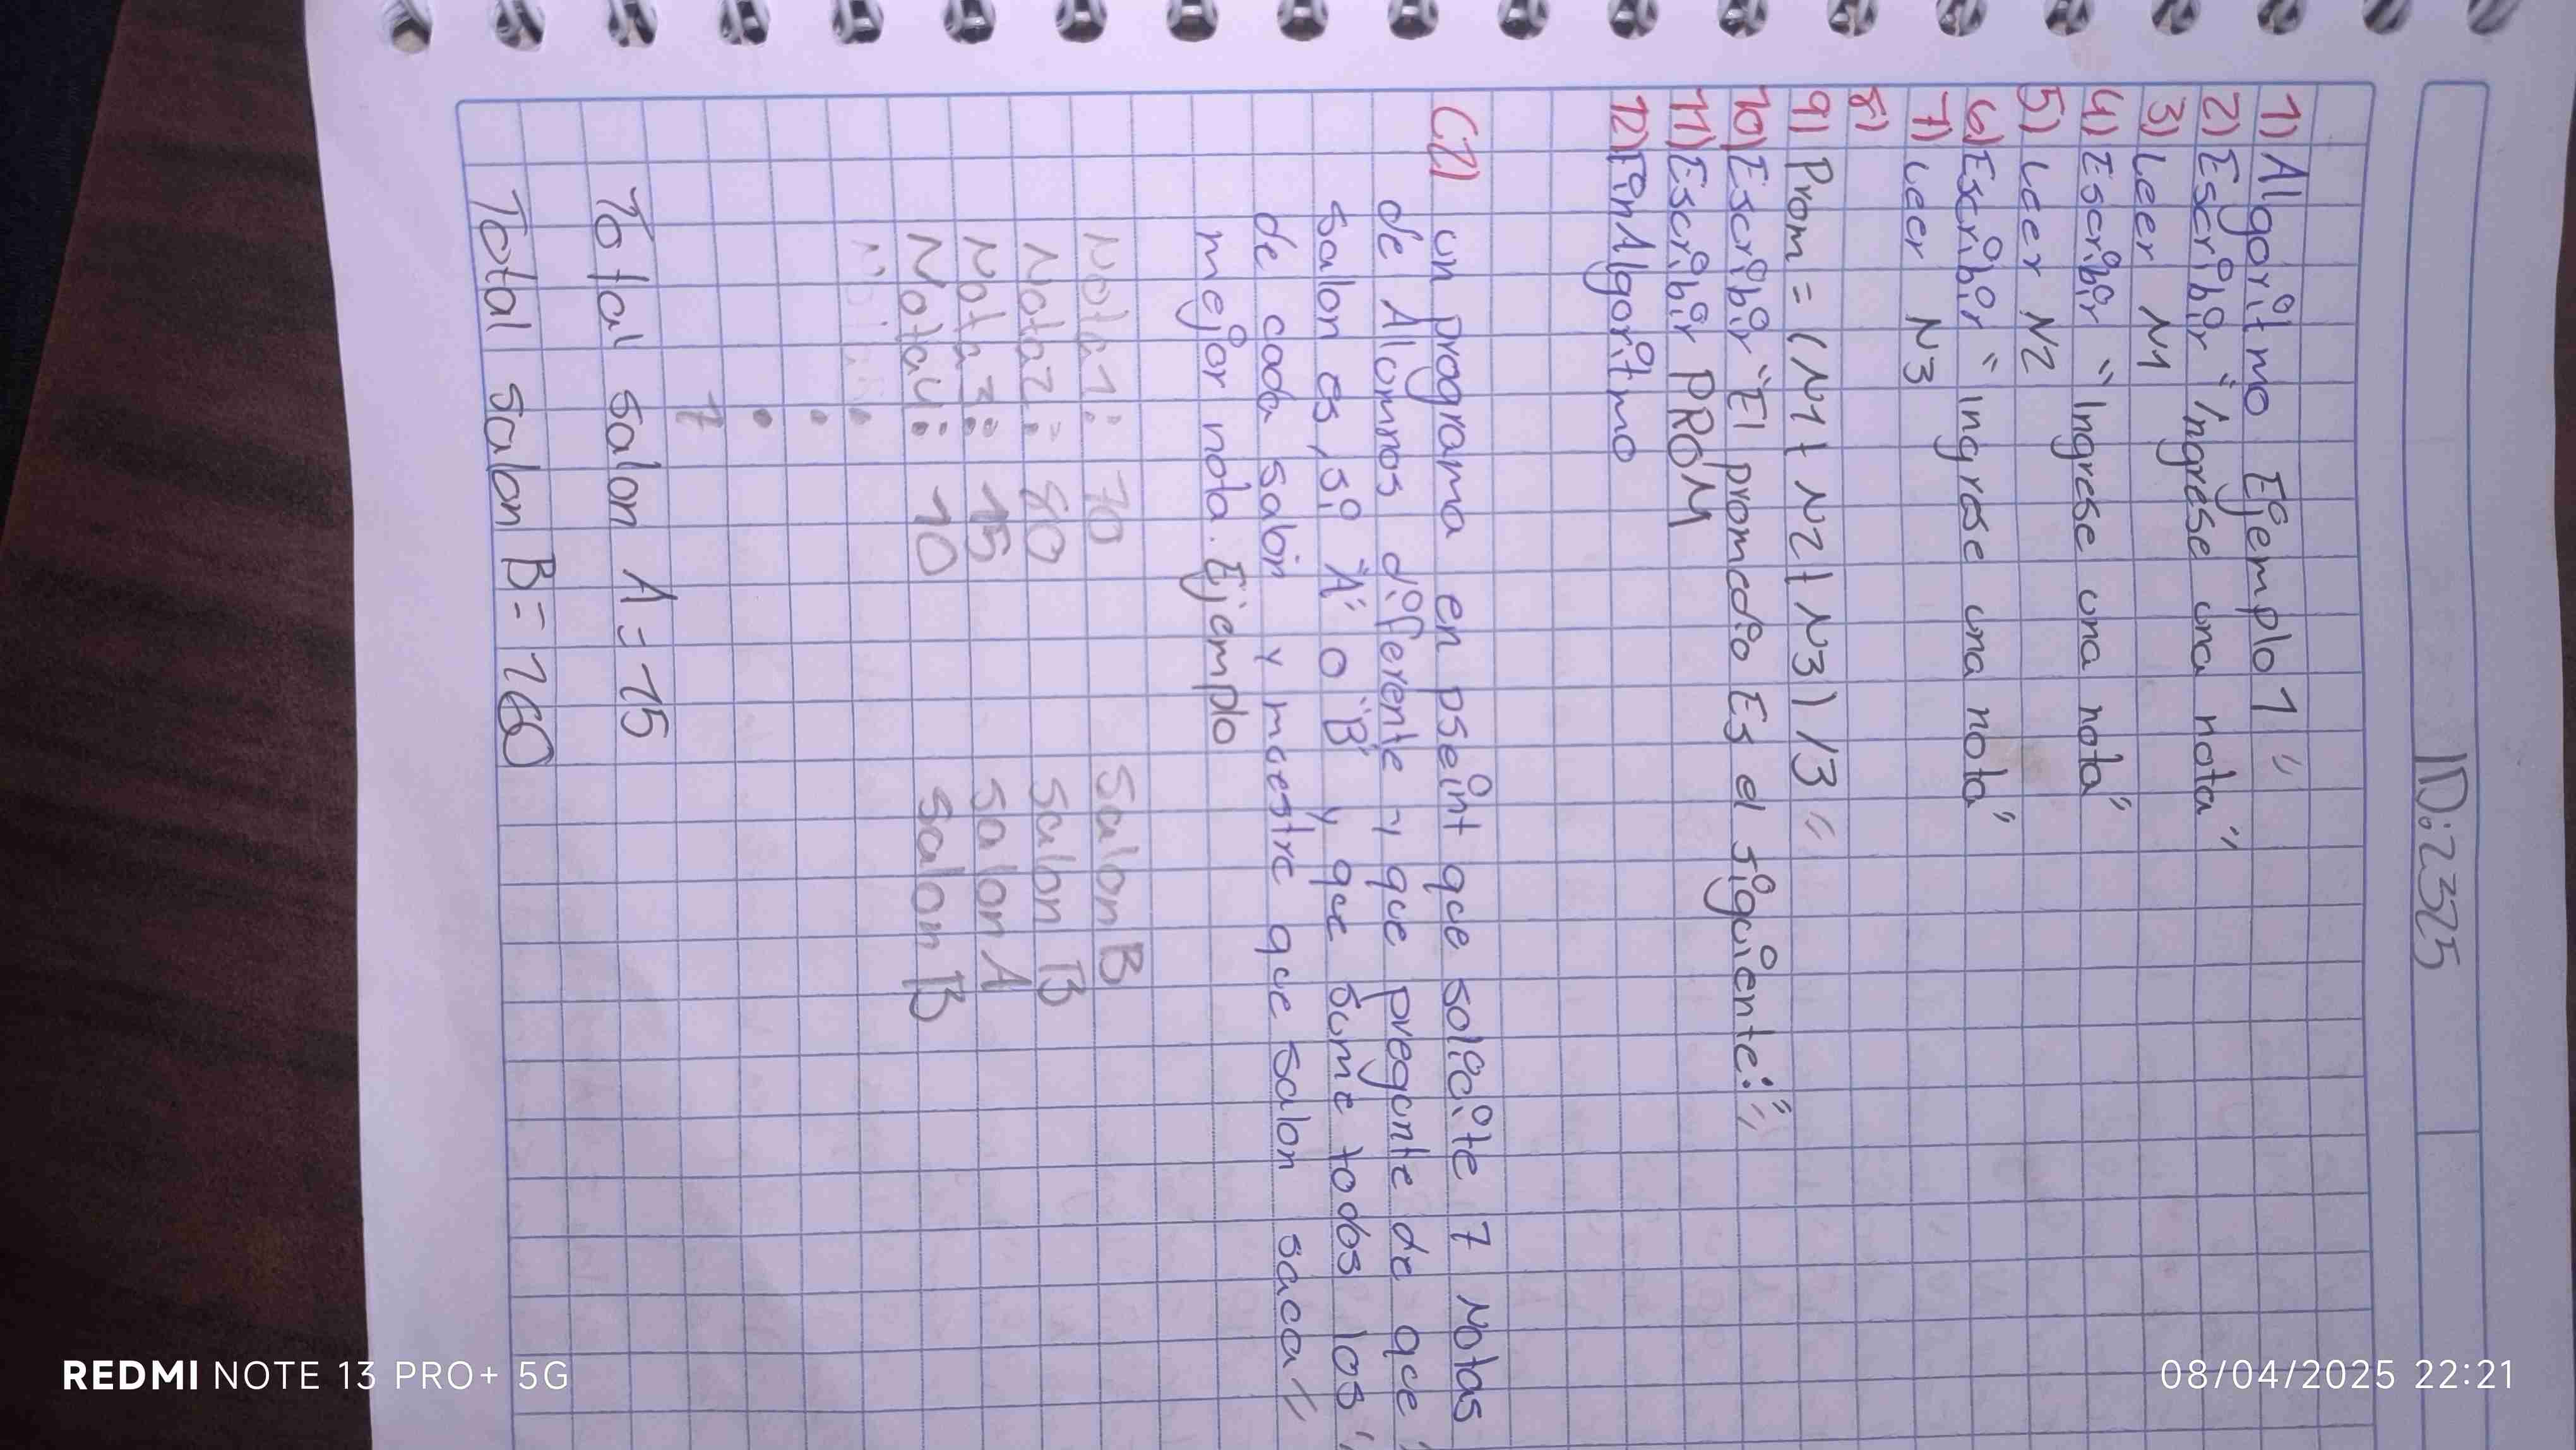 ID:2325
1) Algoritmo Ejemplo 1 "
2) Escribir "Ingrese una nota"
3) Leer N1
4) Escribir "Ingrese una nota"
5) Leer N2
6) Escribir "Ingrese una nota"
7) Leer N3
8)
9) Prom = (N1+N2+N3)/3 "
10) Escribir "El promedio Es el siguiente:"
11) Escribir PROM
12) FinAlgoritmo
C2) un programa en pseint que solicite 7 Notas
de Alumnos diferente y que pregunte de que
salon es, si "A" o "B" y que sume todos los
de cada salón y muestre que salon saca
mejor nota. Ejemplo
Nota1: 70 Salon B
Nota2: 80 Salon B
Nota3: 15 Salon A
Nota4: 10 Salon B
7
Total Salon A = 15
Total Salon B = 160
REDMI NOTE 13 PRO+ 5G
08/04/2025 22:21